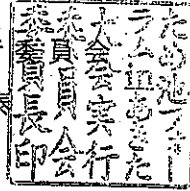 ため池フォー
ラムinあきた
大会実行
委員会
委員長印